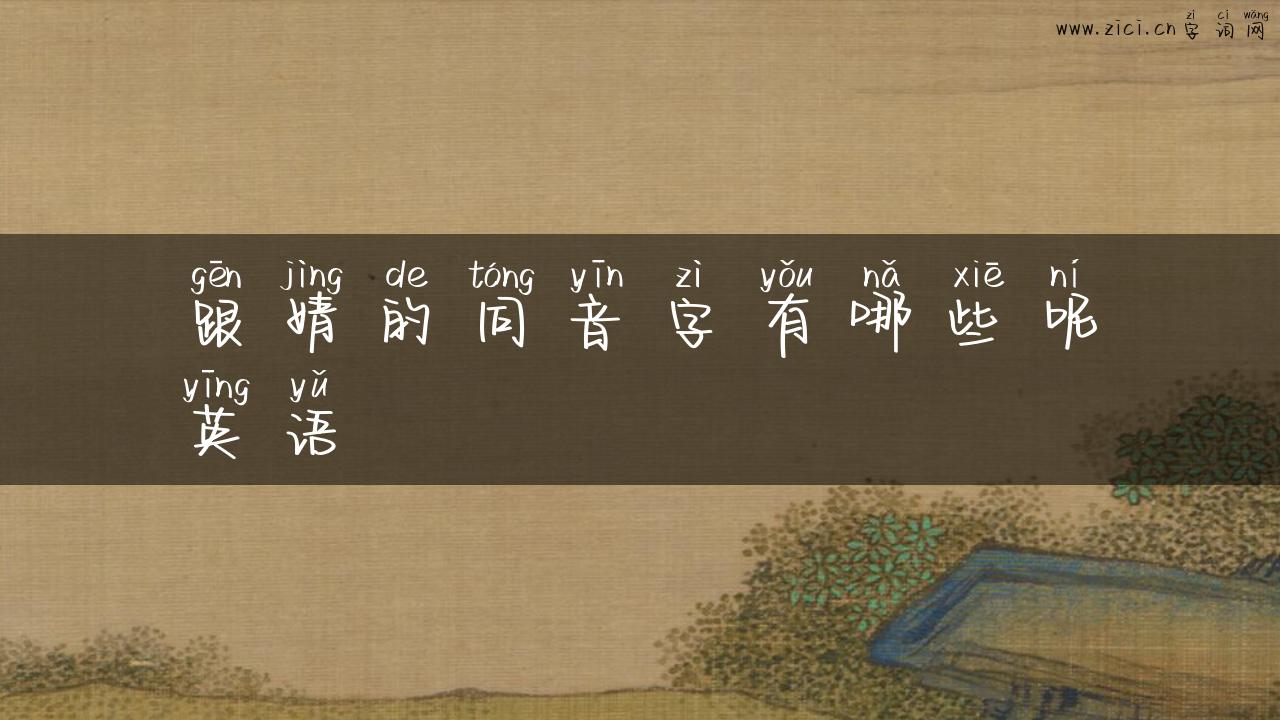 zì cí wǎng
www.zici.cn 字 词 网
gēn jìng de tóng yīn zì yǒu nǎ xiē ní
跟 婧 的 同 音 字 有 哪 些 呢
yīng yǔ
英 语